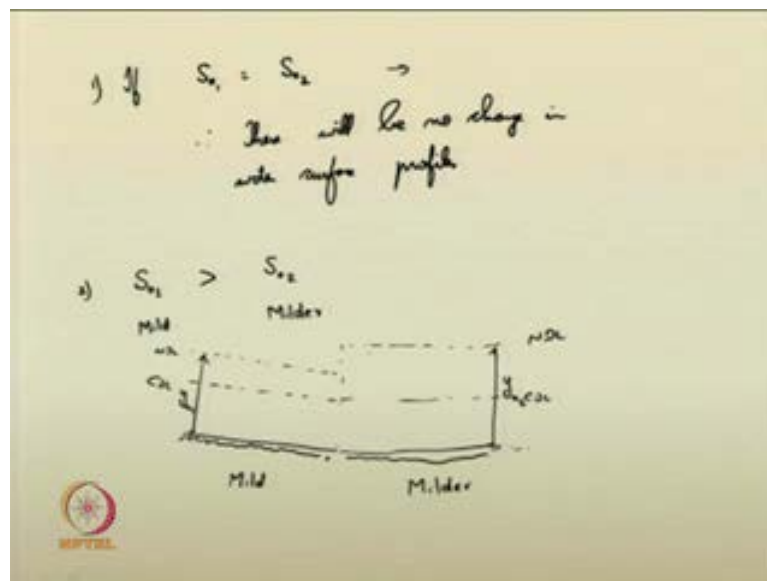 1) If S₀₁ = S₀₂ →
∴ There will be no change in
water surface profile
2) S₀₁ > S₀₂
Mild Milder
NDL NDL
CDL CDL
Mild Milder
NPTEL